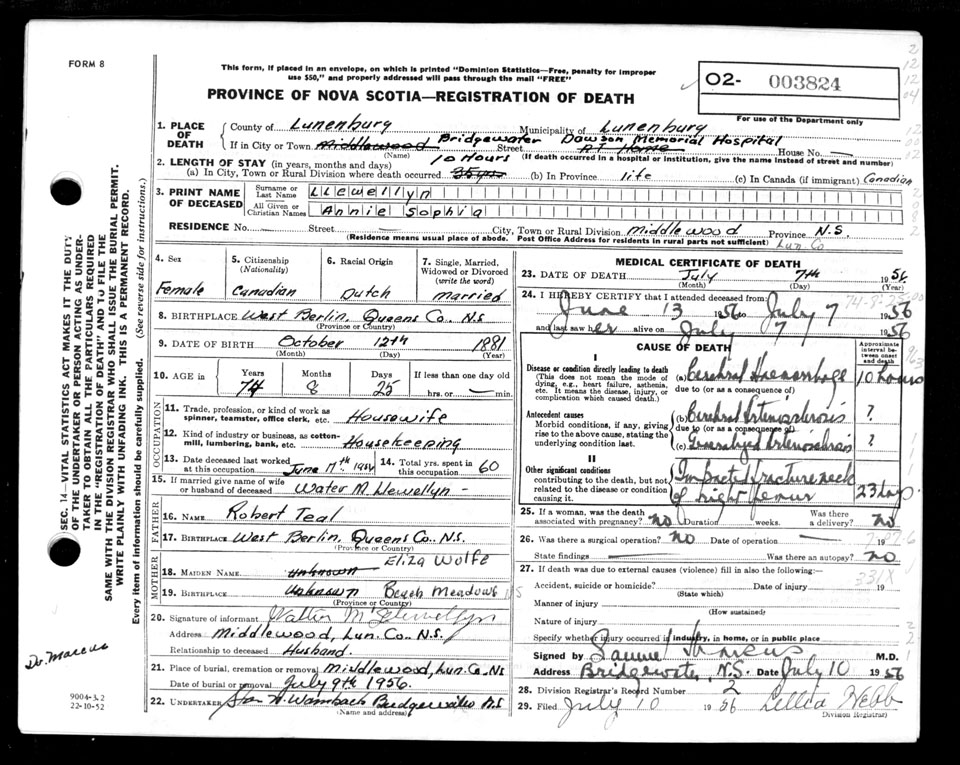 FORM 8
This form, if placed in an envelope, on which is printed "Dominion Statistics—Free, penalty for improper
use $50," and properly addressed will pass through the mail "FREE"
PROVINCE OF NOVA SCOTIA—REGISTRATION OF DEATH
O2- 003824
For use of the Department only
1. PLACE OF DEATH
County of Lunenburg Municipality of Lunenburg
If in City or Town Middlewood Bridgewater Street Dawson Memorial Hospital At Home House No.
(Name) (If death occurred in a hospital or institution, give the name instead of street and number)
2. LENGTH OF STAY (in years, months and days) 10 Hours
(a) In City, Town or Rural Division where death occurred 35 yrs (b) In Province life (c) In Canada (if immigrant) Canadian
3. PRINT NAME OF DECEASED
Surname or Last Name Llewellyn
All Given or Christian Names Annie Sophia
RESIDENCE No. — Street — City, Town or Rural Division Middlewood Province N.S.
(Residence means usual place of abode. Post Office Address for residents in rural parts not sufficient) Lun. Co
4. Sex Female
5. Citizenship (Nationality) Canadian
6. Racial Origin Dutch
7. Single, Married, Widowed or Divorced (write the word) Married
8. BIRTHPLACE West Berlin, Queens Co., N.S
(Province or Country)
9. DATE OF BIRTH October 12th 1881
(Month) (Day) (Year)
10. AGE in Years 74 Months 8 Days 25 If less than one day old — hrs. or — min.
OCCUPATION
11. Trade, profession, or kind of work as spinner, teamster, office clerk, etc. Housewife
12. Kind of industry or business, as cotton-mill, lumbering, bank, etc. Housekeeping
13. Date deceased last worked at this occupation June 17th 1956
14. Total yrs. spent in this occupation 60
15. If married give name of wife or husband of deceased Water M. Llewellyn -
FATHER
16. NAME Robert Teal
17. BIRTHPLACE West Berlin, Queens Co., N.S.
(Province or Country)
MOTHER
18. MAIDEN NAME Unknown Eliza Wolfe
19. BIRTHPLACE Unknown Beach Meadows NS
(Province or Country)
20. Signature of informant Walter M Llewellyn
Address Middlewood, Lun. Co., N.S.
Relationship to deceased Husband.
21. Place of burial, cremation or removal Middlewood, Lun. Co. NS
Date of burial or removal July 9th 1956.
22. UNDERTAKER W. Wambach Bridgewater NS
(Name and address)
MEDICAL CERTIFICATE OF DEATH
23. DATE OF DEATH July 7th 1956
(Month) (Day) (Year)
24. I HEREBY CERTIFY that I attended deceased from:
June 13 1956 to July 7 1956
and last saw her alive on July 7 1956
CAUSE OF DEATH
Approximate interval between onset and death
I
Disease or condition directly leading to death
(This does not mean the mode of dying, e.g., heart failure, asthenia, etc. It means the disease, injury, or complication which caused death.)
(a) Cerebral Haemorrhage 10 hours
due to (or as a consequence of)
Antecedent causes
Morbid conditions, if any, giving rise to the above cause, stating the underlying condition last.
(b) Cerebral Arteriosclerosis ?
due to (or as a consequence of)
(c) Generalized Arteriosclerosis ?
II
Other significant conditions
contributing to the death, but not related to the disease or condition causing it.
Impacted fracture neck of right femur 23 days
25. If a woman, was the death associated with pregnancy? no Duration weeks. Was there a delivery? no
26. Was there a surgical operation? no Date of operation — 19
State findings — Was there an autopsy? no
27. If death was due to external causes (violence) fill in also the following:—
Accident, suicide or homicide? Date of injury 19
(State which)
Manner of injury
(How sustained)
Nature of injury
Specify whether injury occurred in industry, in home, or in public place
Signed by Samuel Marcus M.D.
Address Bridgewater, N.S. Date July 10 1956
28. Division Registrar's Record Number 2
29. Filed July 10 1956 Lellia Webb
Division Registrar)
SEC. 14—VITAL STATISTICS ACT MAKES IT THE DUTY
OF THE UNDERTAKER OR PERSON ACTING AS UNDER-
TAKER TO OBTAIN ALL THE PARTICULARS REQUIRED
IN THE "REGISTRATION OF DEATH" AND TO FILE THE
SAME WITH THE DIVISION REGISTRAR WHO SHALL ISSUE THE BURIAL PERMIT.
WRITE PLAINLY WITH UNFADING INK. THIS IS A PERMANENT RECORD.
Every item of information should be carefully supplied. (See reverse side for instructions.)
Dr. Marcus
9004-3.2
22-10-52